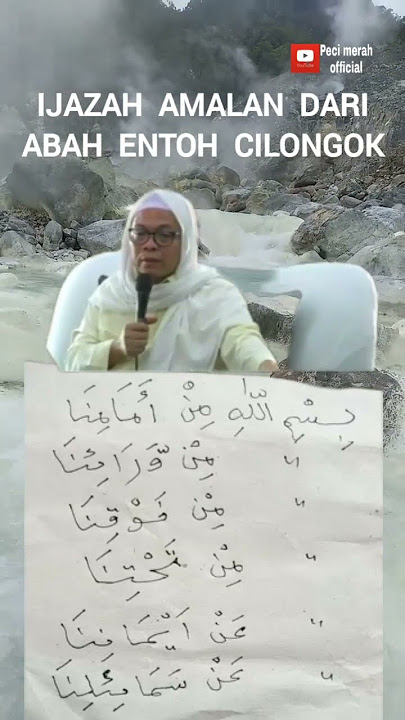 Peci merah
official
YouTube
IJAZAH AMALAN DARI
ABAH ENTOH CILONGOK
بِسْمِ اللّٰهِ مِنْ أَمَامِنَا
〃 مِنْ وَّرَائِنَا
〃 مِنْ فَوْقِنَا
〃 مِنْ تَحْتِنَا
〃 عَنْ اَيْمَانِنَا
〃 عَنْ سَمَائِلِنَا